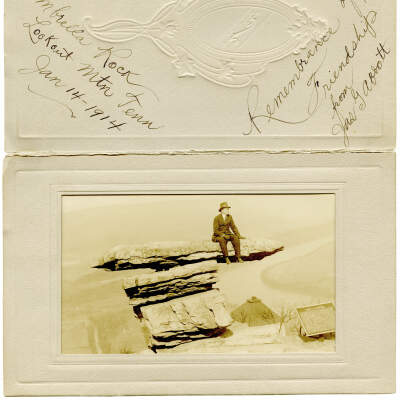 mbrella Rock
Lookout Mtn Tenn
Jan 14 - 1914
Remembrance
Friendship
from
Jas